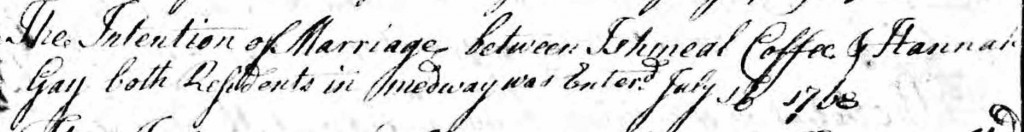 The Intention of Marriage between Ishmeal Coffee & Hannah
Gay both Residents in medway was Enterd July 16 1768